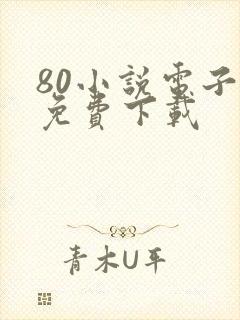 80小説電子
免費下載
青木U平